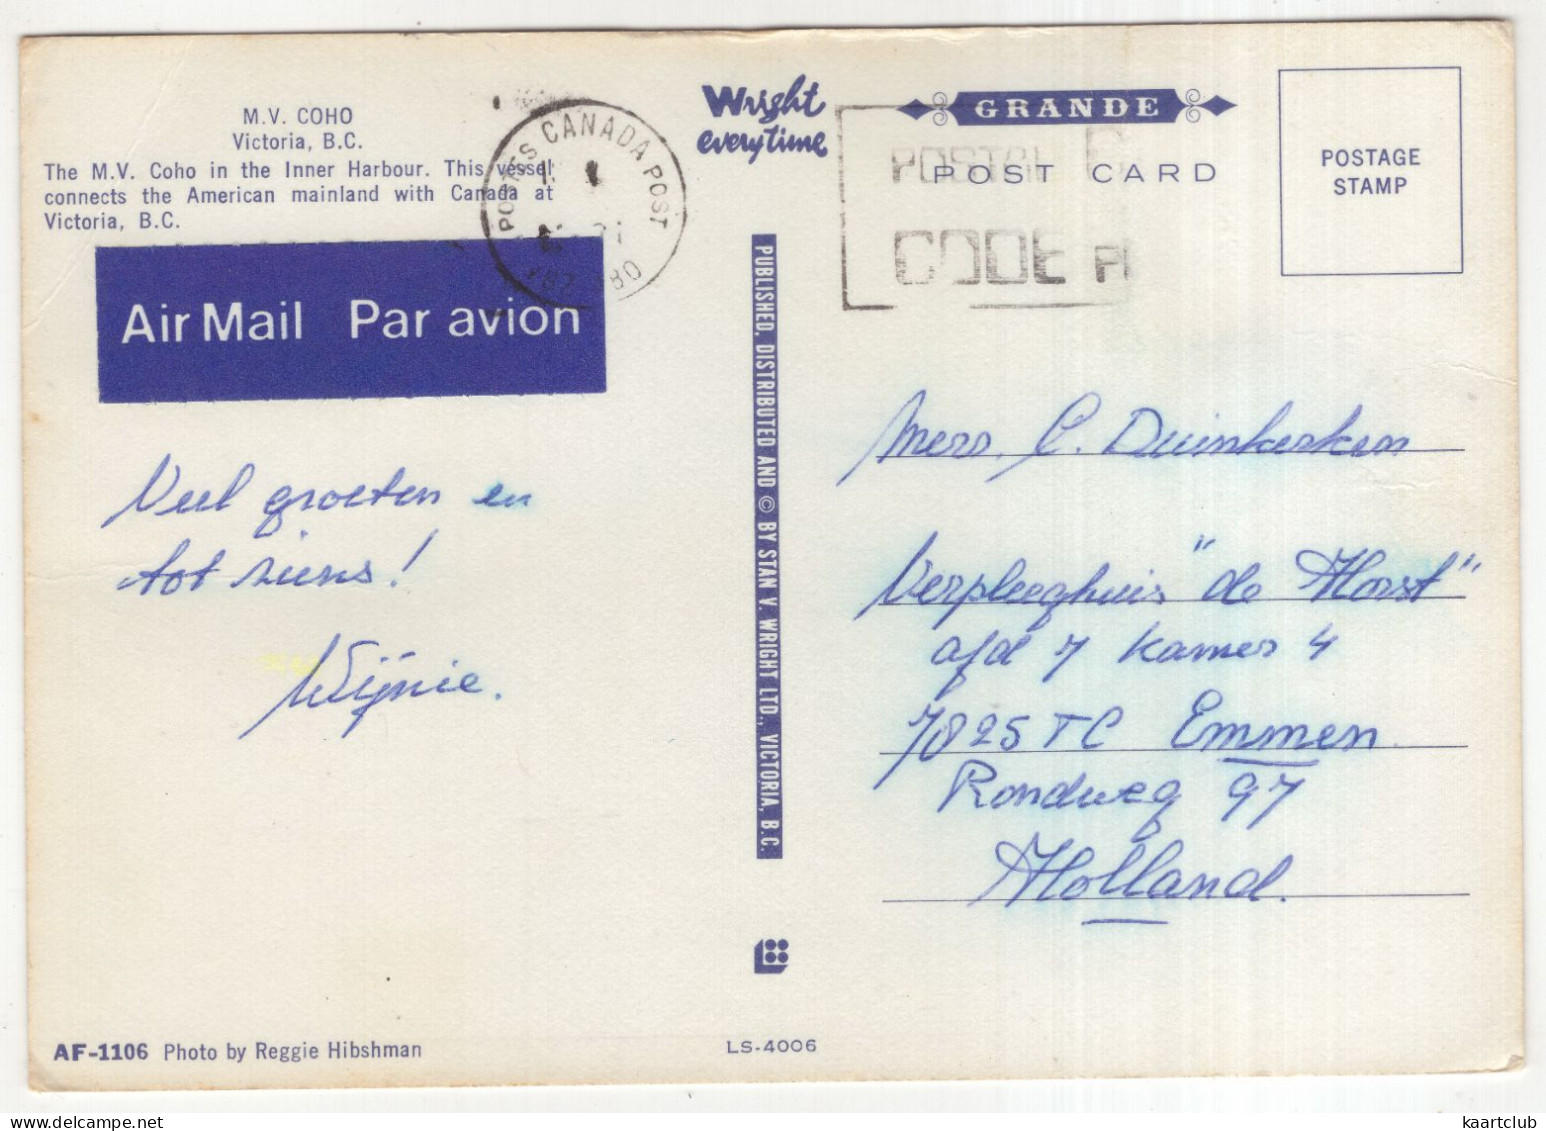 M.V. COHO
Victoria, B.C.
The M.V. Coho in the Inner Harbour. This vessel
connects the American mainland with Canada at
Victoria, B.C.
Air Mail Par avion
POSTES CANADA POST
Wright
everytime
GRANDE
POST CARD
POSTAL
CODE P
POSTAGE
STAMP
PUBLISHED, DISTRIBUTED AND © BY STAN V. WRIGHT LTD., VICTORIA, B.C.
Veel groeten en
tot ziens!
Wijnie.
Mevr. C. Duinkerken
Verpleeghuis "de Horst"
afd 7 kamer 4
7825 TC Emmen
Rondweg 97
Holland.
AF-1106 Photo by Reggie Hibshman
LS-4006
kaartclub